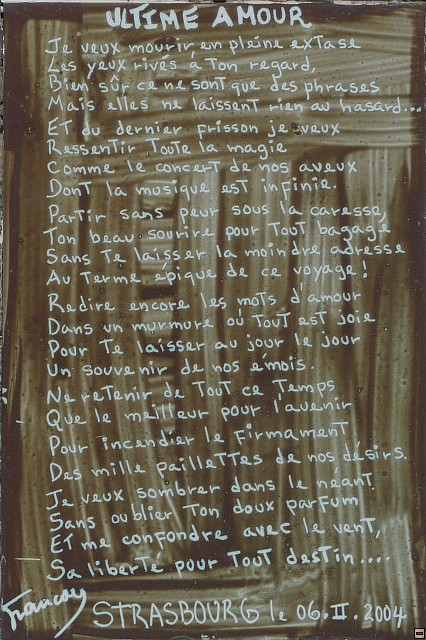 ULTIME AMOUR
Je veux mourir, en pleine extase
Les yeux rivés à ton regard,
Bien sûr ce ne sont que des phrases
Mais elles ne laissent rien au hasard...
Et du dernier frisson je veux
Ressentir toute la magie
Comme le concert de nos aveux
Dont la musique est infinie.
Partir sans peur sous la caresse,
Ton beau sourire pour tout bagage
Sans te laisser la moindre adresse
Au terme épique de ce voyage!
Redire encore les mots d'amour
Dans un murmure où tout est joie
Pour te laisser au jour le jour
Un souvenir de nos émois.
Ne retenir de tout ce temps
Que le meilleur pour l'avenir
Pour incendier le firmament
Des mille paillettes de nos désirs.
Je veux sombrer dans le néant
Sans oublier ton doux parfum
Et me confondre avec le vent,
Sa liberté pour tout destin....
STRASBOURG le 06.II.2004